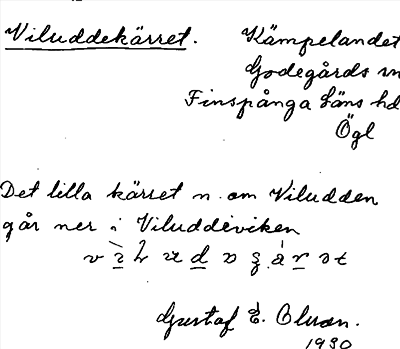 Viluddekärret. Kämpelandet
Godegårds sn
Finspånga läns hd
Ögl
Det lilla kärret n. om Viludden
går ner i Viluddeviken
Gustaf E. Olson.
1930